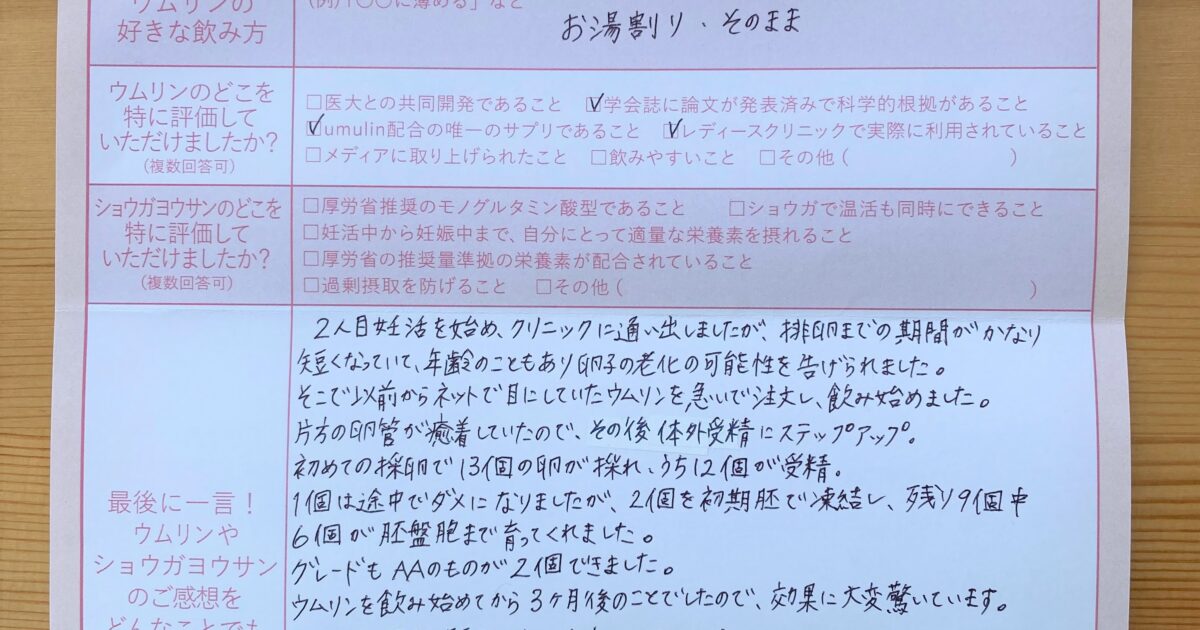 ウムリンの
好きな飲み方
(例)「○○に薄める」など
お湯割り・そのまま
ウムリンのどこを
特に評価して
いただけましたか?
(複数回答可)
□医大との共同開発であること ☑学会誌に論文が発表済みで科学的根拠があること
☑umulin配合の唯一のサプリであること ☑レディースクリニックで実際に利用されていること
□メディアに取り上げられたこと □飲みやすいこと □その他( )
ショウガヨウサンのどこを
特に評価して
いただけましたか?
(複数回答可)
□厚労省推奨のモノグルタミン酸型であること □ショウガで温活も同時にできること
□妊活中から妊娠中まで、自分にとって適量な栄養素を摂れること
□厚労省の推奨量準拠の栄養素が配合されていること
□過剰摂取を防げること □その他( )
最後に一言!
ウムリンや
ショウガヨウサン
のご感想を
どんなことでも
2人目妊活を始め、クリニックに通い出しましたが、排卵までの期間がかなり
短くなっていて、年齢のこともあり卵子の老化の可能性を告げられました。
そこで以前からネットで目にしていたウムリンを急いで注文し、飲み始めました。
片方の卵管が癒着していたので、その後体外受精にステップアップ。
初めての採卵で13個の卵が採れ、うち12個が受精。
1個は途中でダメになりましたが、2個を初期胚で凍結し、残り9個中
6個が胚盤胞まで育ってくれました。
グレードもAAのものが2個できました。
ウムリンを飲み始めてから3ヶ月後のことでしたので、効果に大変驚いています。